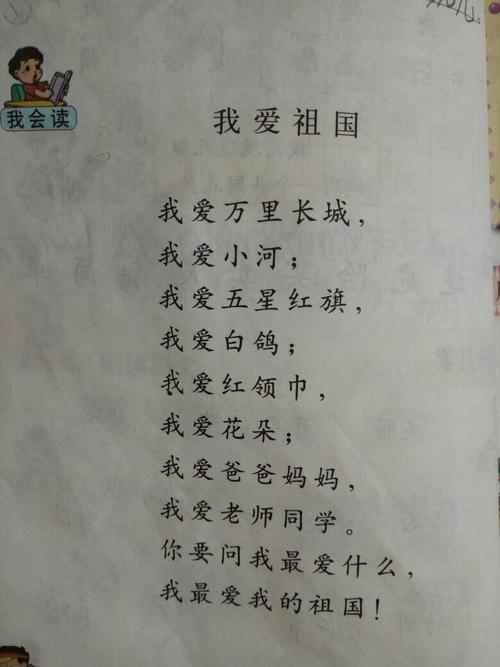 我会读
我爱祖国
我爱万里长城，
我爱小河；
我爱五星红旗，
我爱白鸽；
我爱红领巾，
我爱花朵；
我爱爸爸妈妈，
我爱老师同学。
你要问我最爱什么，
我最爱我的祖国！